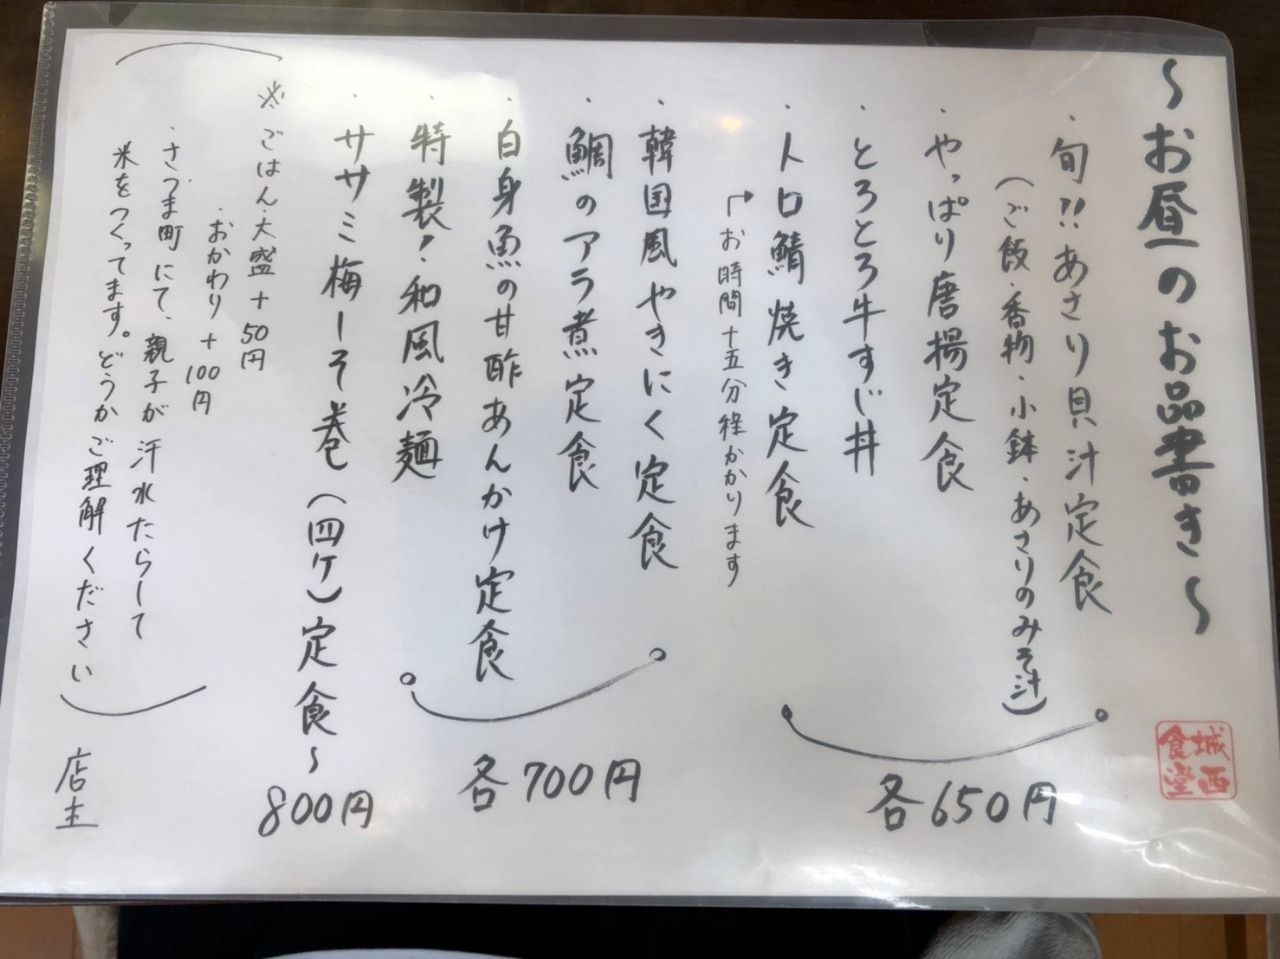 ～お昼のお品書き～
・旬⁇あさり貝汁定食
(ご飯・香物・小鉢・あさりのみそ汁)
・やっぱり唐揚定食
・とろとろ牛すじ丼
・トロ鯖焼き定食
お時間十五分程かかります
各650円
・韓国風やきにく定食
・鯛のアラ煮定食
・白身魚の甘酢あんかけ定食
・特製！和風冷麺
各700円
・ササミ梅しそ巻(四ケ)定食～
800円
※ごはん・大盛+50円
・おかわり+100円
・さつま町にて、親子が汗水たらして
米をつくってます。どうかご理解ください
店主
城西
食堂